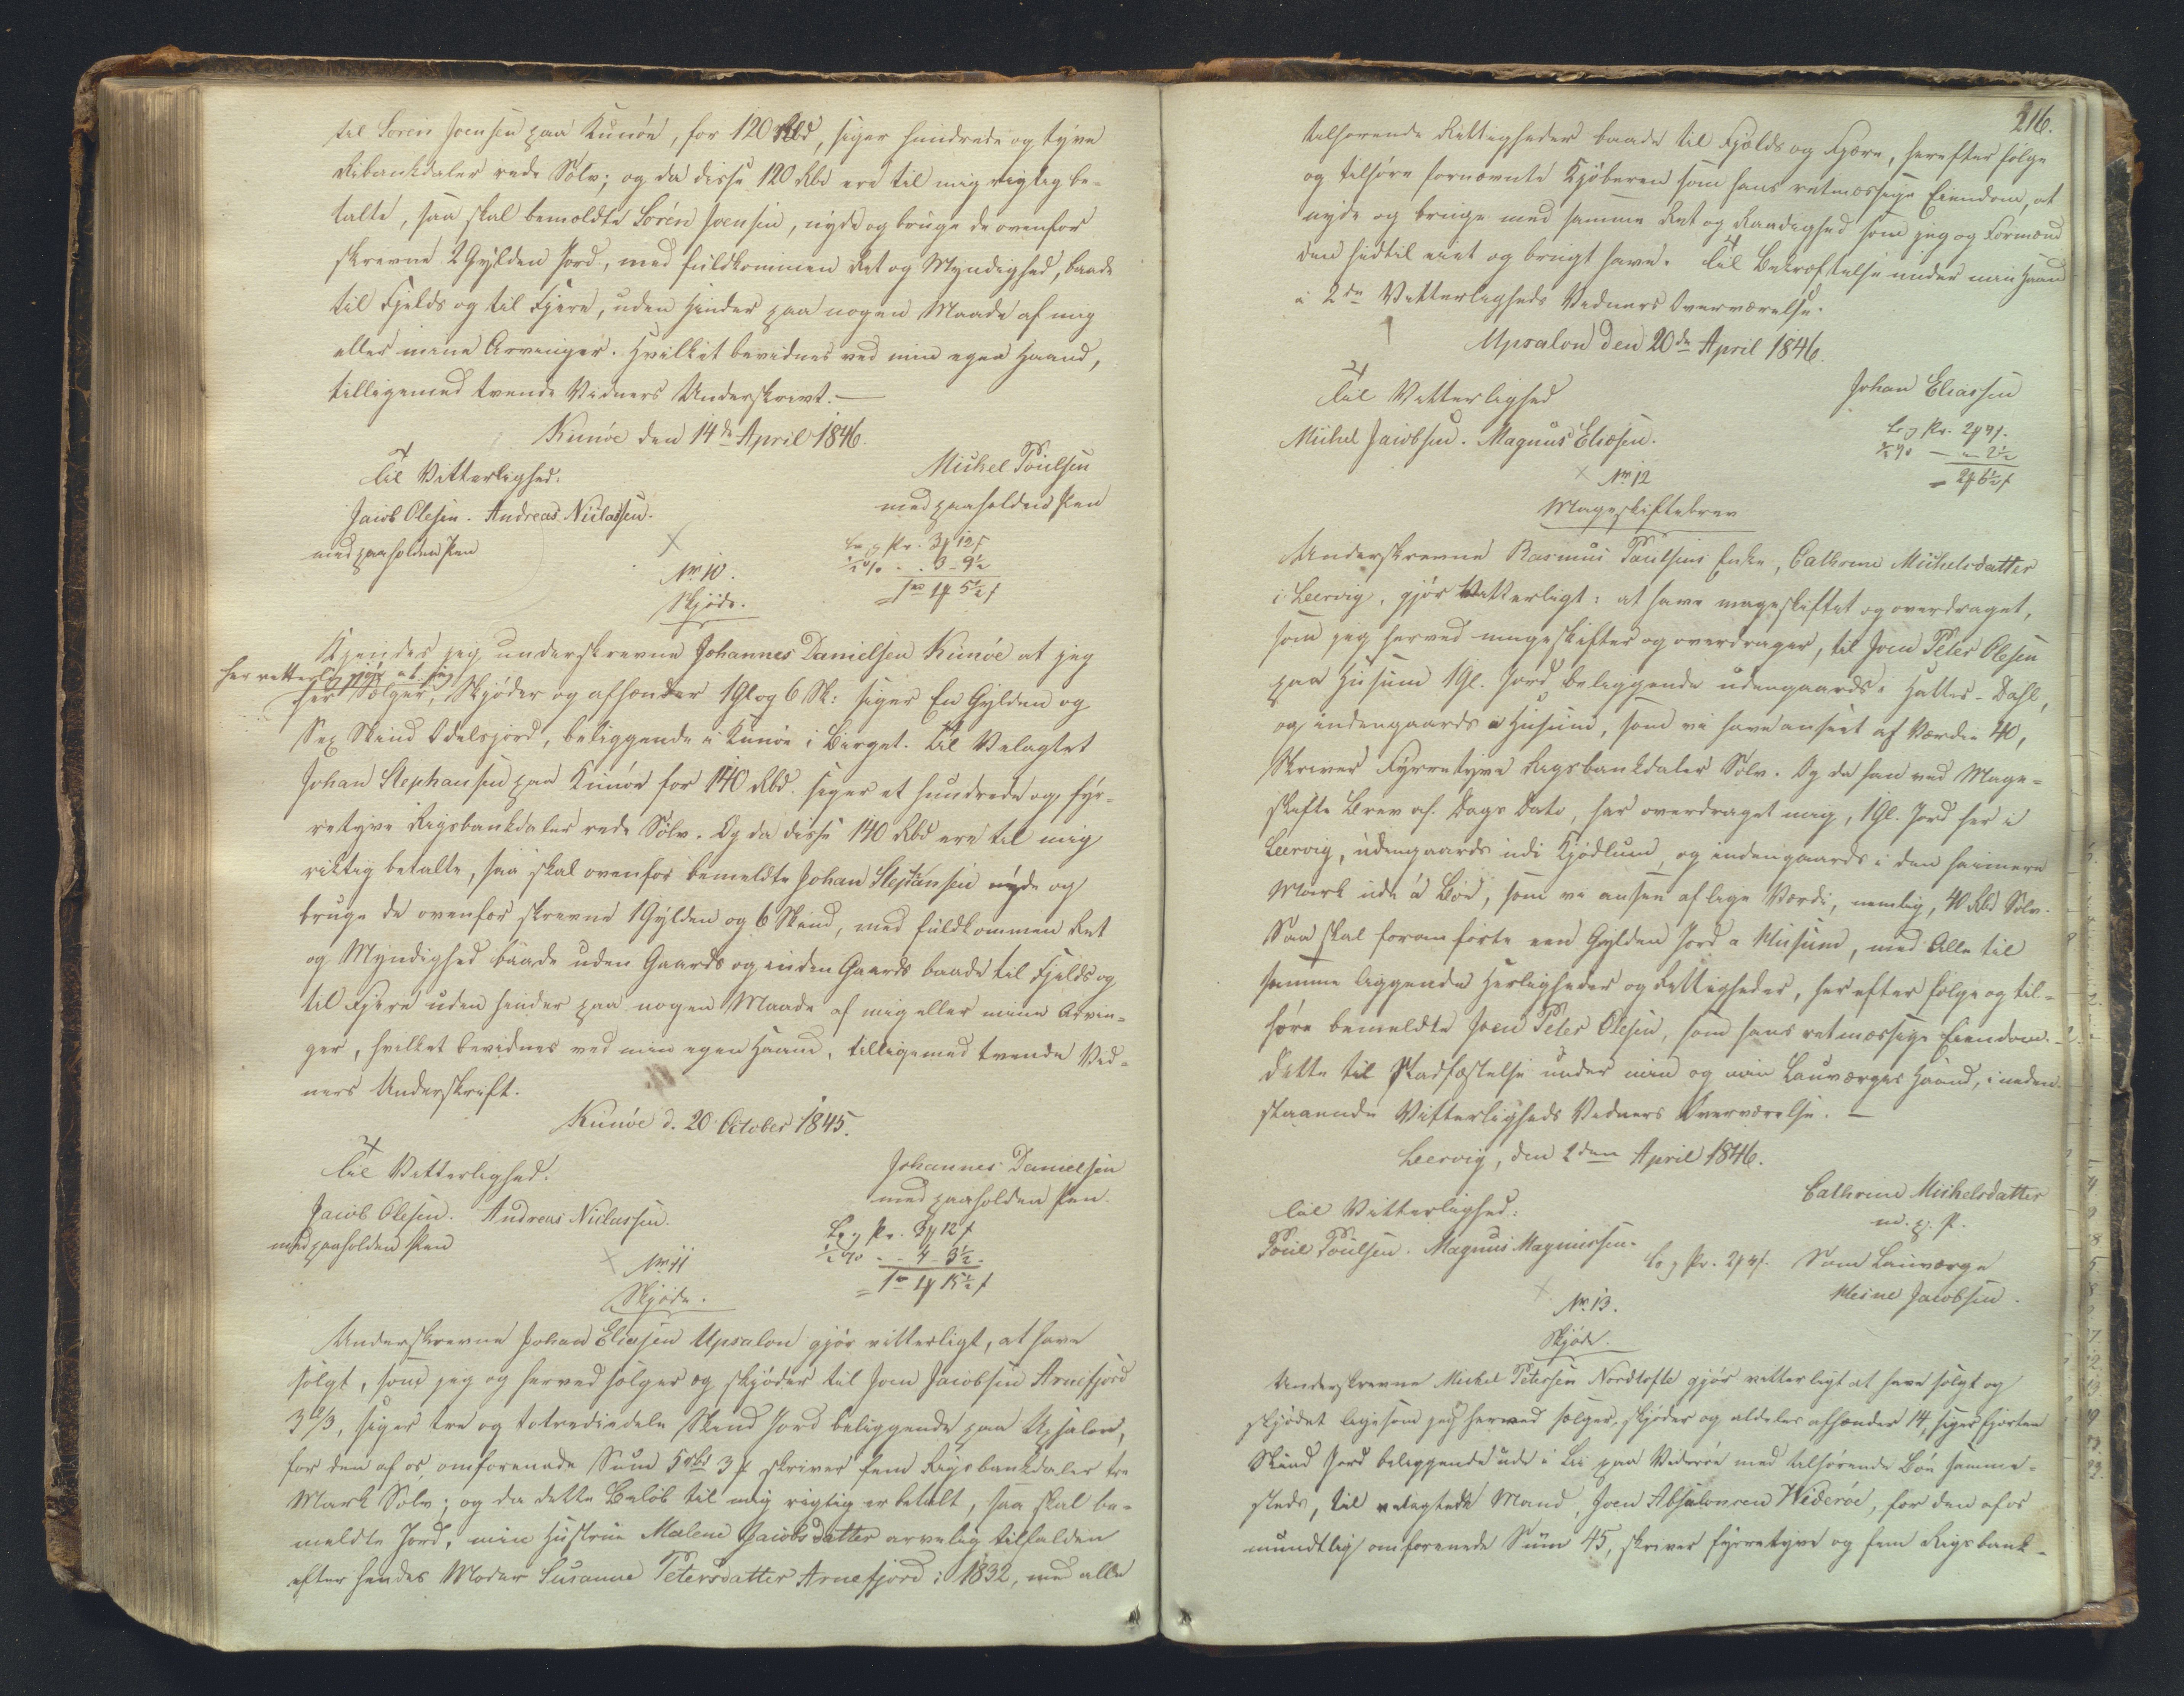 til Soren Joensen paa Kunöe, for 120 Rbd, siger hundrede og tyve
Ribankdaler rede Sölv; og da disse 120 Rbd ere til mig rigtig be-
talte, saa skal bemeldte Sorén Joensen, nyde og bruge de ovenfor
skrevne 2 Gylden Jord, med fuldkommen Ret og Myndighed, baade
til Fjelds og til Fjere, uden Hinder paa nogen Maade af mig
eller mine Arvinger. Hvilket bevidnes ved min egen Haand,
tilligemed tvende Vidners Underskrivt. —
Kunöe den 14de April 1846.
Til Vitterlighed.
Michel Poulsen
Jacob Olesen. Andreas Niclassen.
med paaholden Pen
med paaholden Pen
3 12
3 - 9½
1 5½
No 10.
Skjöde.
Kjendes jeg underskrevne Johannes Danielsen Kunöe at jeg
her vitterlig gjör at jeg
her Sælger, Skjöder og afhænder 1 Gl og 6 Sk: siger En Gylden og
Sex Skind Odelsjord, beliggende i Kunöe i Biget. til Velagtet
Johan Stephansen paa Kunöe for 140 Rbd. siger et hundrede og fyr-
retyve Rigsbankdaler rede Sölv. Og da disse 140 Rbd ere til mig
riktig betalte, saa skal ovenfor bemeldte Johan Stephansen nyde og
bruge de ovenfor skrevne 1 Gylden og 6 Skind, med fuldkommen Ret
og Myndighed baade uden Gaards og inden Gaards baade til Fjelds og
til Fjere uden hinder paa nogen Maade af mig eller mine Arvin-
ger, hvilket bevidnes ved min egen Haand, tilligemed tvende Vid-
ners Underskrift.
Kunöe d. 20 October 1845.
Til Vitterlighed.
Johannes Danielsen
med paaholden Pen.
Jacob Olesen. Andreas Niclassen.
med paaholden Pen
3 12
4 3½
1 15½
No 11
Skjöde.
Underskrevne Johan Eliasen Upsalon gjör vitterligt, at have
solgt, som jeg og herved sælger og skjöder til Joen Jacobsen Arnefjord
3 2/3, siger tre og totrediedele Skind Jord beliggende paa Upsalon,
for den af os omforenede Sum 5 Rbd 3 skriver fem Rigsbankdaler tre
Mark Sölv; og da dette Belöb til mig rigtig er betalt, saa skal be-
meldte Jord, min Hustrue Malene Jacobsdatter arvelig tilfalden
efter hendes Moder Susanne Petersdatter Arnefjord i 1832, med alle
216.
tilhörende Rettigheder baade til Fjelds og Fjære, herefter fölge
og tilhöre fornævnte Kjöberen som hans retmæssige Eiendom, at
nyde og bruge med samme Ret og Raadighed som jeg og Formænd
den hidtil eiet og brugt have. Til Bekræftelse under min Haand
i 2de Vitterligheds Vidners Overværelse.
Upsalon den 20de April 1846.
Til Vitterlighed
Johan Eliassen
Michel Jacobsen. Magnus Eliasen.
2
2½
2 6½
No 12
Mageskiftebrev
Underskrevne Rasmus Poulsens Enke, Cathrine Michelsdatter
i Leervig, gjör Vitterligt: at have mageskiftet og overdraget,
som jeg herved mageskifter og overdrager, til Joen Peter Olesen
paa Husum 1 Gl. Jord beliggende udengaards i Hatter-Dahl,
og indengaards a Husum, som vi have anseet af Værdie 40,
Skriver Fyrretyve Rigsbankdaler Sölv. Og da han ved Mage-
skifte Brev af Dags Dato, har overdraget mig, 1 Gl. Jord her i
Leervig, udengaards udi Kjödlum, og indengaards i den
Mark ude á Böe, som vi ansee af lige Værdi, nemlig, 40 Rbd Sölv.
Saa skal foranförte een Gylden Jord a Husum, med Alle til
samme liggende Herligheder og Rettigheder, her efter fölge og til-
höre bemeldte Joen Peter Olesen, som hans retmæssige Eiendom.
Dette til Stadfæstelse under min og min Lauværges Haand, i neden-
staaende Vitterligheds Vidners Overværelse. —
Leervig, den 2den April 1846.
Til Vitterlighed:
Cathrine Michelsdatter
m. p. P.
Poul Poulsen. Magnus Magnussen.
Som Lauværge
Heine Jacobsen.
No 13.
Skjöde.
Underskrevne Michel Petersen Nordtofte gjör vitterligt at have solgt og
skjödet ligesom jeg herved sælger, skjöder og aldeles afhænder 14, siger fjorten
Skind Jord beliggende ude i paa Videröe med tilhörende Böe samme-
steds, til velagtede Mand, Joen Absalonsen Wideröe, for den af os
mundtlig omforenede Sum 45, skriver fyrretyve og fem Rigsbank-